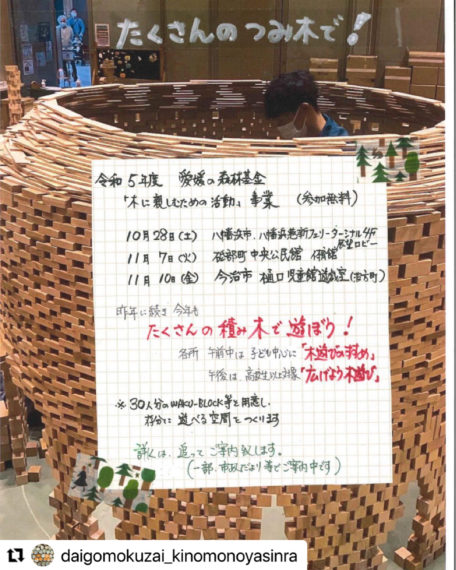 たくさんのつみ木で！
令和5年度 愛媛の森林基金
「木に親しむための活動」事業 (参加無料)
10月28日(土) 八幡浜市 八幡浜港新フェリーターミナル4F
展望ロビー
11月7日(火) 砥部町 中央公民館
11月10日(金) 今治市 樋口児童館遊戯室
昨年に続き 今年も
たくさんの積み木で遊ぼう！
各所 午前中は 子ども中心に「木遊びのすすめ」
午後は、高校生以上対象「広げよう木遊び」
※30人分のWAKU-BLOCK等を用意し、
存分に遊べる空間をつくります
詳しくは、追ってご案内致します。
(一部、市政だより等でご案内中です)
daigomokuzai_kinomonoyasinra